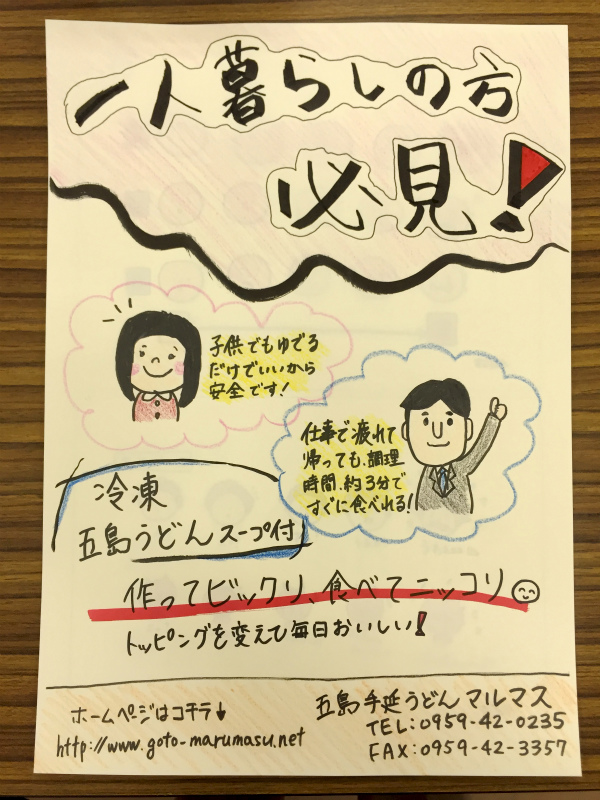 一人暮らしの方
必見!
子供でもゆでる
だけでいいから
安全です!
仕事で疲れて
帰っても、調理
時間、約3分で
すぐに食べれる!
冷凍
五島うどんスープ付
作ってビックリ、食べてニッコリ
トッピングを変えて毎日おいしい!
ホームページはコチラ↓
http://www.goto-marumasu.net
五島手延うどんマルマス
TEL:0959-42-0235
FAX:0959-42-3357